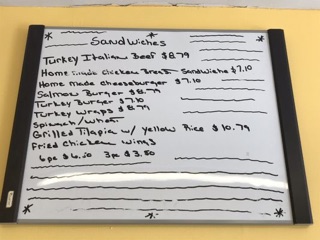 Sandwiches
Turkey Italian Beef $8.79
Home made Chicken Breast Sandwichs $7.10
Home made cheeseburger $7.10
Salmon Burger $8.79
Turkey Burger $7.10
Turkey Wraps $8.79
Spinach/wheat
Grilled Tilapia w/ yellow Rice $10.79
Fried Chicken wings
6pc $6.20 3pc $3.50